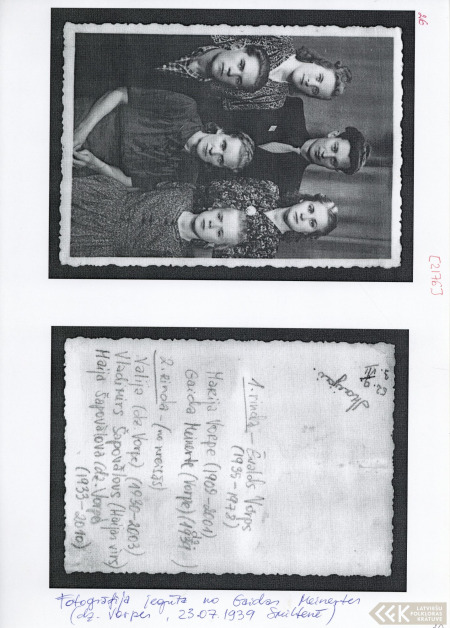 26
[2176]
1. rinda - Evalds Vārpe
(1930-1978)
Marija Vārpe (1909-2001)
Gaida Meinerte (Vārpe) (1939)
2. rinda - (no kreisās)
Valija (dz. Vārpe) (1930-2003)
Vladimirs Šapovālovs (Maijas vīrs)
Maija Šapovālova (dz. Vārpe)
(1933-2010)
Fotogrāfija iegūta no Gaidas Meinertes
(dz. Vārpes, 23.07.1939 Smiltenē)
LATVIEŠU
FOLKLORAS
KRĀTUVE